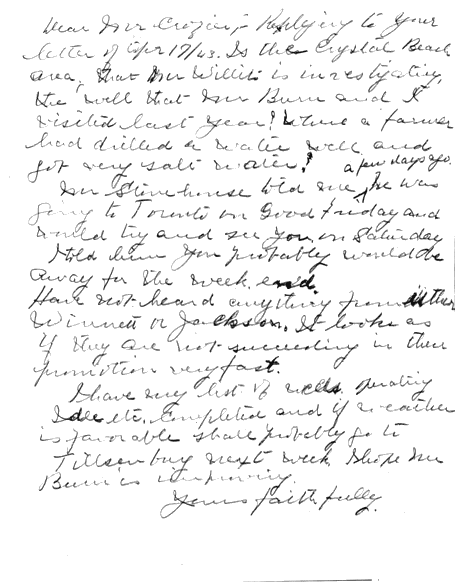 Dear Mr Crozier, - Replying to your
letter of Apr 17/43. Is the Crystal Beach
area, that Mr Willits is investigating,
the well that Mr Burn and I
visited last year! Where a farmer
had drilled a water well and
got very salt water!
a few days ago.
Mr Stonehouse told me, he was
going to Toronto on Good Friday and
would try and see you, on Saturday
I told him you probably would be
away for the week end.
Have not heard anything from either
Winnett or Jackson. It looks as
if they are not succeeding in their
promotion very fast.
I have my list of wells, operating
Idle etc, Completed and if weather
is favorable shall probably go to
Tillsonburg next week. I hope Mr
Burn is improving.
Yours faithfully